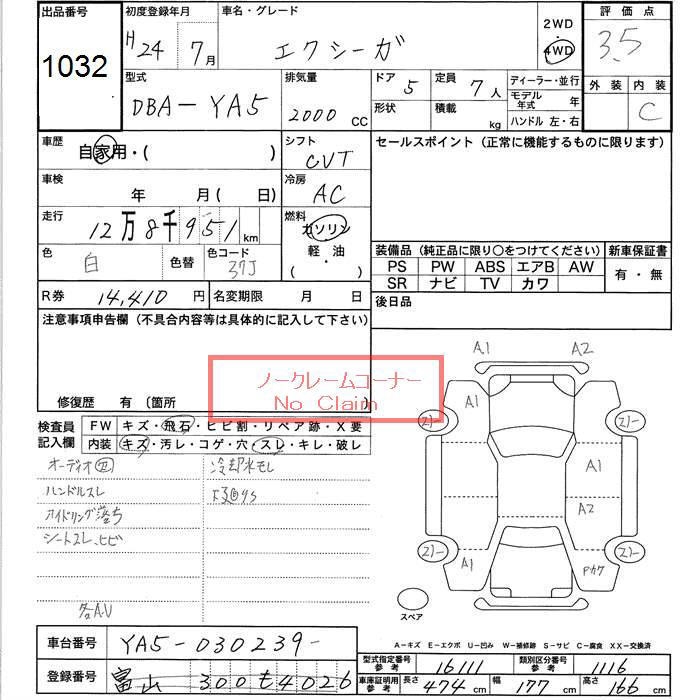 出品番号 初度登録年月 車名・グレード 2WD・4WD 評価点
1032 H24 7月 エクシーガ 3.5
型式 排気量 ドア 5 定員 7人 ディーラー・並行 外装 内装
DBA-YA5 2000 CC 形状 積載 kg モデル年式 年 C
ハンドル 左・右
車歴 自家用・( ) シフト CVT セールスポイント(正常に機能するものに限ります)
車検 年 月( 日) 冷房 AC
走行 12万8千951km 燃料 ガソリン
軽・油
( ・ )
色 白 色替 色コード 37J 装備品(純正品に限り○をつけてください) 新車保証書
PS PW ABS エアB AW 有・無
SR ナビ TV カワ
R券 14,410円 名変期限 月 日 後日品
注意事項申告欄(不具合内容等は具体的に記入して下さい)
ノークレームコーナー
No Claim
修復歴 有(箇所
検査員記入欄 FW キズ・飛石・ヒビ割・リペア跡・X要
内装 キズ・汚レ・コゲ・穴・スレ・キレ・破レ
オーディオ 冷却水モレ
ハンドルスレ
アイドリング落ち
シートスレ、ヒビ
各A.U
A1 A2
A1
A1
A2
A1 Pカケ
スペア
A-キズ E-エクボ U-凹み W-補修跡 S-サビ C-腐食 XX-交換済
車台番号 YA5-030239-
登録番号 富山 300 も 4026
型式指定番号参考 16111 類別区分番号参考 1116
車庫証明用参考 長さ 474cm 幅 177cm 高さ 166cm